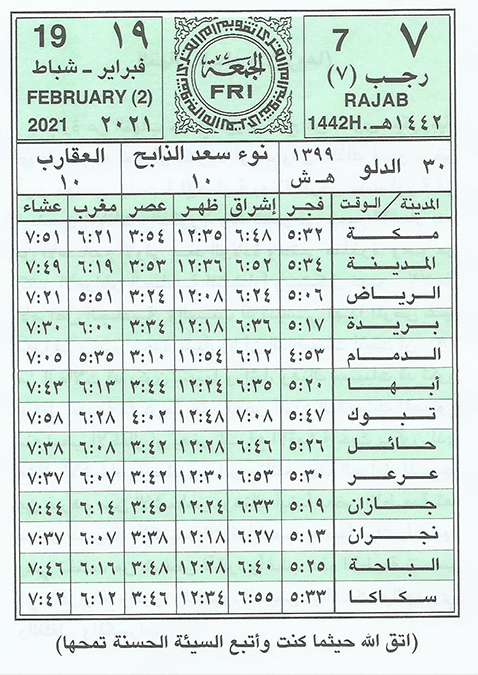 19 ١٩
فبراير - شباط
FEBRUARY (2)
2021 ٢٠٢١
الجمعة
FRI
7 ٧
رجب (٧)
RAJAB
1442H. ١٤٤٢هـ
٣٠ الدلو ١٣٩٩ هـ ش
نوء سعد الذابح ١٠
العقارب ١٠
المدينة / الوقت فجر إشراق ظهر عصر مغرب عشاء
مكة ٥:٣٢ ٦:٤٨ ١٢:٣٥ ٣:٥٤ ٦:٢١ ٧:٥١
المدينة ٥:٣٤ ٦:٥٢ ١٢:٣٦ ٣:٥٣ ٦:١٩ ٧:٤٩
الرياض ٥:٠٦ ٦:٢٤ ١٢:٠٨ ٣:٢٤ ٥:٥١ ٧:٢١
بريدة ٥:١٧ ٦:٣٦ ١٢:١٨ ٣:٣٤ ٦:٠٠ ٧:٣٠
الدمام ٤:٥٣ ٦:١٢ ١١:٥٤ ٣:١٠ ٥:٣٥ ٧:٠٥
أبها ٥:٢٠ ٦:٣٥ ١٢:٢٤ ٣:٤٤ ٦:١٣ ٧:٤٣
تبوك ٥:٤٧ ٧:٠٨ ١٢:٤٨ ٤:٠٢ ٦:٢٨ ٧:٥٨
حائل ٥:٢٦ ٦:٤٦ ١٢:٢٨ ٣:٤٢ ٦:٠٨ ٧:٣٨
عرعر ٥:٣٠ ٦:٥٣ ١٢:٣٠ ٣:٤٢ ٦:٠٧ ٧:٣٧
جازان ٥:١٩ ٦:٣٣ ١٢:٢٤ ٣:٤٥ ٦:١٤ ٧:٤٤
نجران ٥:١٣ ٦:٢٧ ١٢:١٨ ٣:٣٨ ٦:٠٧ ٧:٣٧
الباحة ٥:٢٥ ٦:٤٠ ١٢:٢٨ ٣:٤٨ ٦:١٦ ٧:٤٦
سكاكا ٥:٣٣ ٦:٥٥ ١٢:٣٤ ٣:٤٦ ٦:١٢ ٧:٤٢
(اتق الله حيثما كنت وأتبع السيئة الحسنة تمحها)